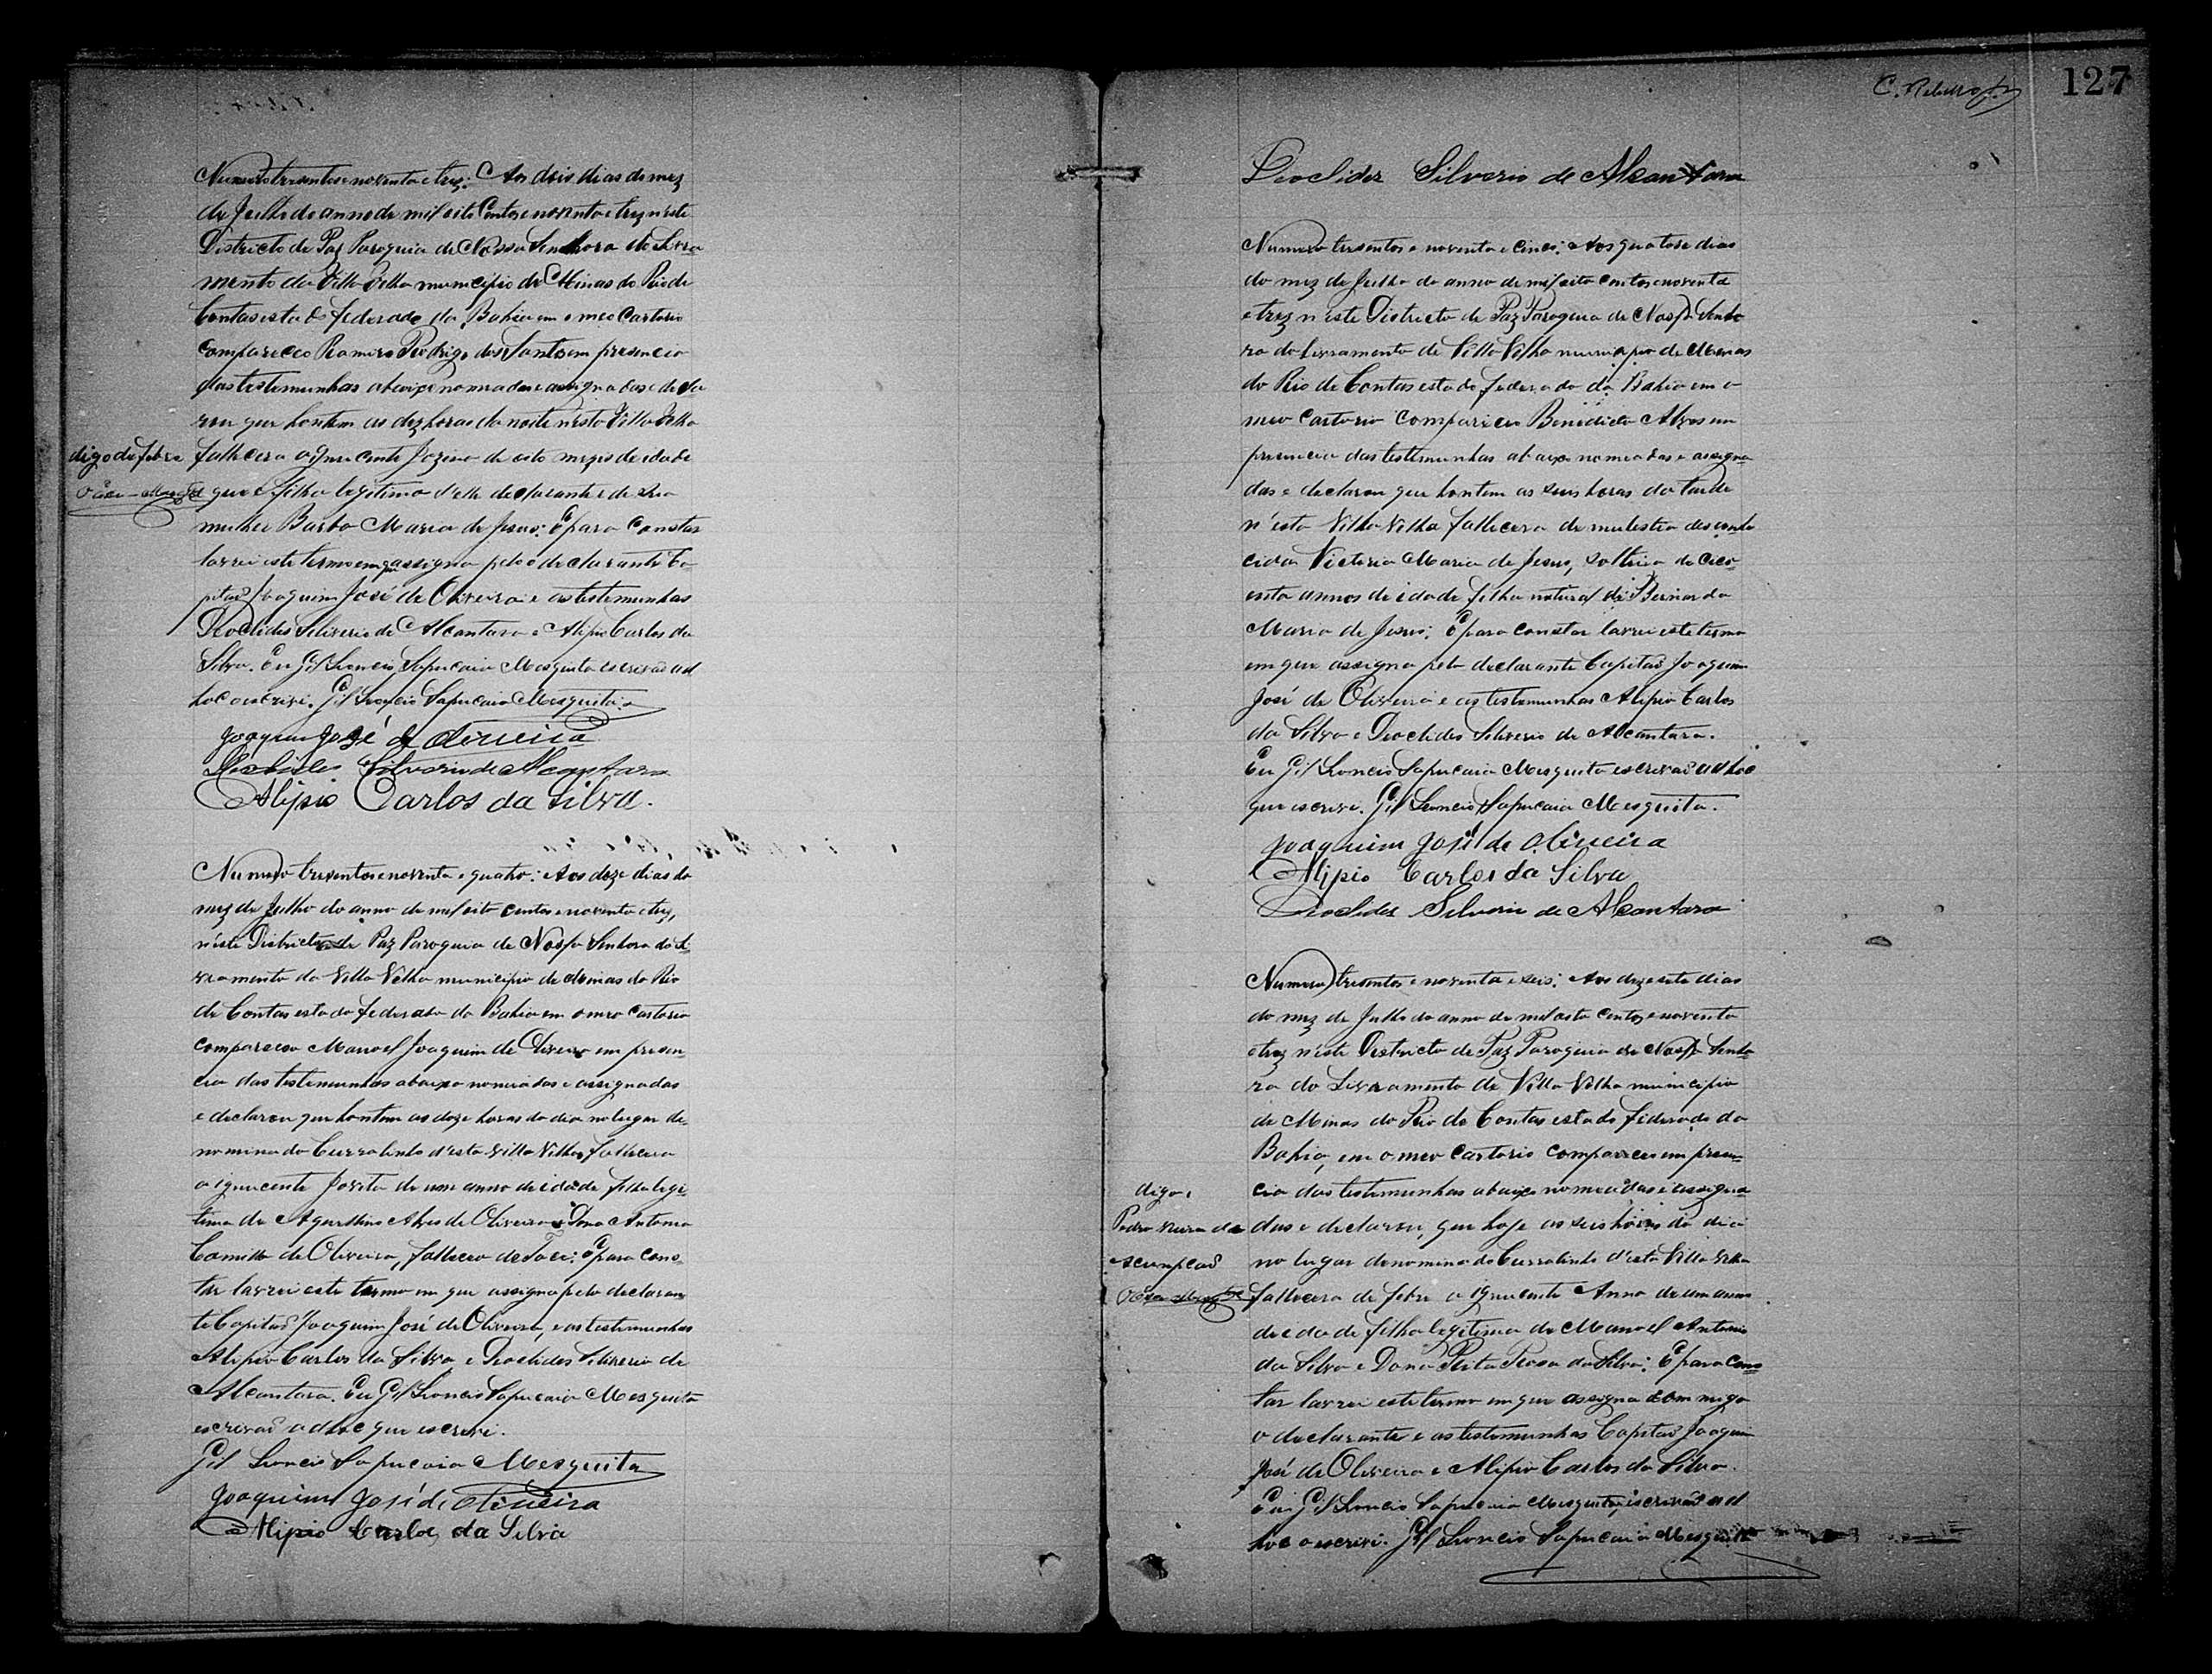 Numero tresentos e noventa e trez: Aos dois dias do mez
de Julho do anno de mil oito centos e noventa e trez n'este
Districto de Paz Paroquia de Nossa Senhora do Livra
mento da Villa Velha municipio de Minas do Rio de
Contas estado federado da Bahia em o meo Cartorio
compareceo Ramiro Rodrigo dos Santos em presencia
das testemunhas abaixo nomeadas e assignadas e decla
rou que hontem as dez horas da noite n'esta Villa Velha
digo de febre
fallecera a ignucente Jozina de oito mezes de idade
O Esc. Mesqta
que é filha legitima d'elle declarante e de sua
mulher Barba Maria de Jesus: E para constar
lavrei este termo em que assigna pelo declarante Ca-
pitaõ Joaquim José de Oliveira e as testemunhas
Deoclides Silverio de Alcantara e Alipio Carlos da
Silva. Eu Gil Leoncio Sapucaia Mesquita escrivaõ ad
hoc o escrivi. Gil Leoncio Sapucaia Mesquita.
Joaquim José de Oliveira
Deoclides Silverio de Alcantara
Alipio Carlos da Silva.
Numero tresentos e noventa e quatro: Aos doze dias do
mez de Julho do anno de mil oito centos e noventa e trez,
n'este Districto de Paz Paroquia de Nossa Senhora do Li-
vramento da Villa Velha municipio de Minas do Rio
de Contas estado federado da Bahia em o meo cartorio
compareceo Manoel Joaquim de Oliveira em presen-
cia das testemunhas abaixo nomeiadas e assignadas
e declarou que hontem as doze horas do dia no lugar de-
nominado Curralinho d'esta Villa Velha, fallecera
a ignucente Jovita de um anno de idade filha legi-
tima de Agustinho Alves de Oliveira e Dona Antonia
Camilla de Oliveira, falleceo de : E para cons-
tar lavrei este termo em que assigna pelo declaran
te Capitaõ Joaquim José de Oliveira, e as testemunhas
Alipio Carlos da Silva e Deoclides Silverio de
Alcantara. Eu Gil Leoncio Sapucaia Mesquita
escrivaõ ad hoc que escrivi.
Gil Leoncio Sapucaia Mesquita
Joaquim José de Oliveira
Alipio Carlos da Silva
C. Rebello
127
Deoclides Silverio de Alcantara
Numero tresentos e noventa e cinco: Aos quatorse dias
do mez de Julho do anno de mil oito centos e noventa
e trez n'este Districto de Paz Paroquia de Nossa Senho
ra do Livramento de Villa Velha municipio de Minas
do Rio de Contas estado federado da Bahia em o
meo cartorio compareceo Benedicto Alves em
presencia das testemunhas abaixo nomeadas e assigna-
das e declarou que hontem as seis horas da tarde
n'esta Villa Velha fallecera de mulestia desconhe
cida Victoria Maria de Jesus, solteira de cico-
enta annos de idade filha natural de Bernarda
Maria de Jesus: E para constar lavrei este termo
em que assigna pelo declarante Capitaõ Joaquim
José de Oliveira e as testemunhas Alipio Carlos
da Silva e Deoclides Silverio de Alcantara.
Eu Gil Leoncio Sapucaia Mesquita escrivaõ ad hoc
que escrivi. Gil Leoncio Sapucaia Mesquita.
Joaquim José de Oliveira
Alipio Carlos da Silva
Deoclides Silverio de Alcantara
Numero tresentos e noventa e seis: Aos dezesete dias
do mez de Julho do anno de mil oito centos e noventa
e trez n'este Destricto de Paz Paroquia de Nossa Senho
ra do Livramento de Villa Velha municipio
de Minas do Rio de Contas estado federado da
Bahia, em o meo Cartorio compareceu em presen-
digo,
cia das testemunhas abaixo nomeiadas e assigna
Pedro Vieira da
das e declarou, que hoje as seis horas do dia
Acumpçaõ
no lugar denominado Curralinho d'esta Villa Velha
O Esc. Mesqta
fallecera de febre a ignucente Anna de um anno
de idade filha legitima de Manoel Antonio
da Silva e Dona Rita Rosa da Silva: E para cons
tar lavrei este termo em que assigna commigo
o declarante e as testemunhas Capitaõ Joaquim
José de Oliveira e Alipio Carlos da Silva.
Eu Gil Leoncio Sapucaia Mesquita, escrivaõ ad
hoc o escrivi. Gil Leoncio Sapucaia Mesquita